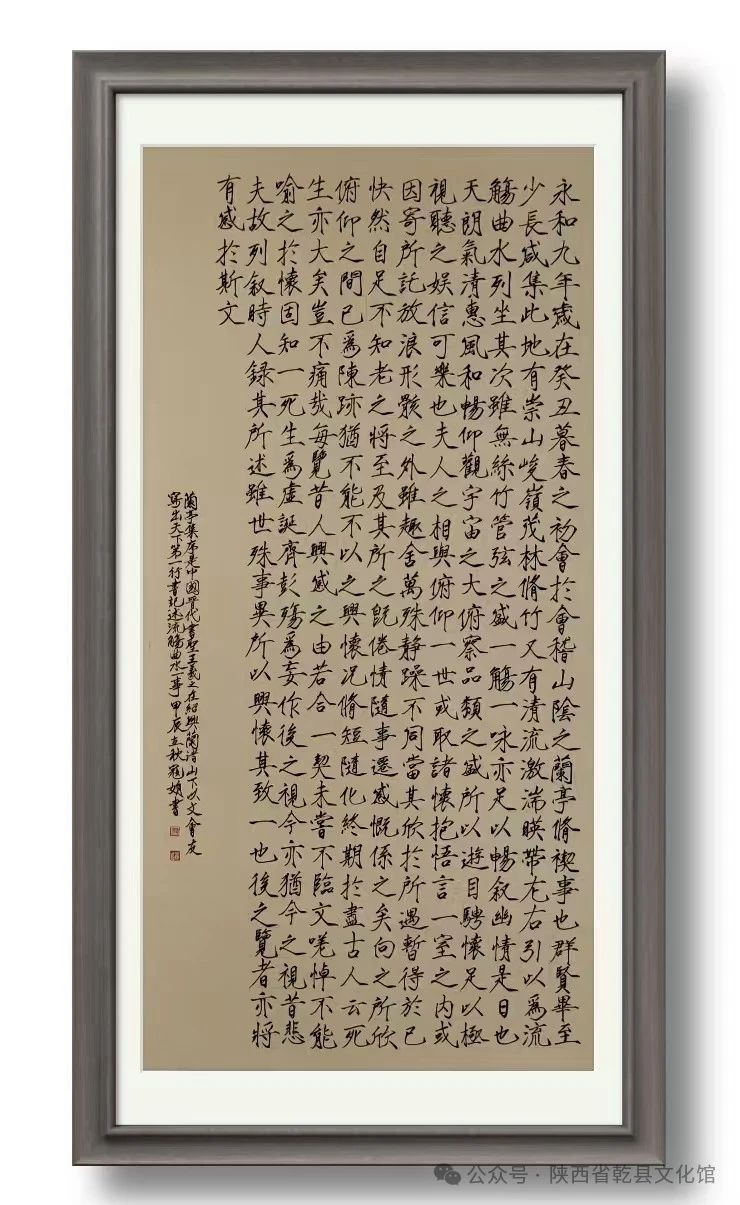 永和九年歲在癸丑暮春之初會於會稽山陰之蘭亭脩禊事也群賢畢至
少長咸集此地有崇山峻嶺茂林脩竹又有清流激湍暎帶左右引以爲流
觴曲水列坐其次雖無絲竹管弦之盛一觴一咏亦足以暢叙幽情是日也
天朗氣清惠風和暢仰觀宇宙之大俯察品類之盛所以遊目騁懷足以極
視聽之娱信可樂也夫人之相與俯仰一世或取諸懷抱悟言一室之内或
因寄所託放浪形骸之外雖趣舍萬殊静躁不同當其欣於所遇暫得於己
快然自足不知老之將至及其所之既倦情隨事遷感慨係之矣向之所欣
俯仰之間已爲陳跡猶不能不以之興懷况脩短隨化終期於盡古人云死
生亦大矣豈不痛哉每覽昔人興感之由若合一契未嘗不臨文嗟悼不能
喻之於懷固知一死生爲虚誕齊彭殤爲妄作後之視今亦猶今之視昔悲
夫故列叙時人録其所述雖世殊事異所以興懷其致一也後之覽者亦將
有感於斯文
蘭亭集序是中國晉代書聖王羲之在紹興蘭渚山下以文會友
寫出天下第一行書記述流觴曲水一事甲辰立秋冠娟書
公众号·陕西省乾县文化馆